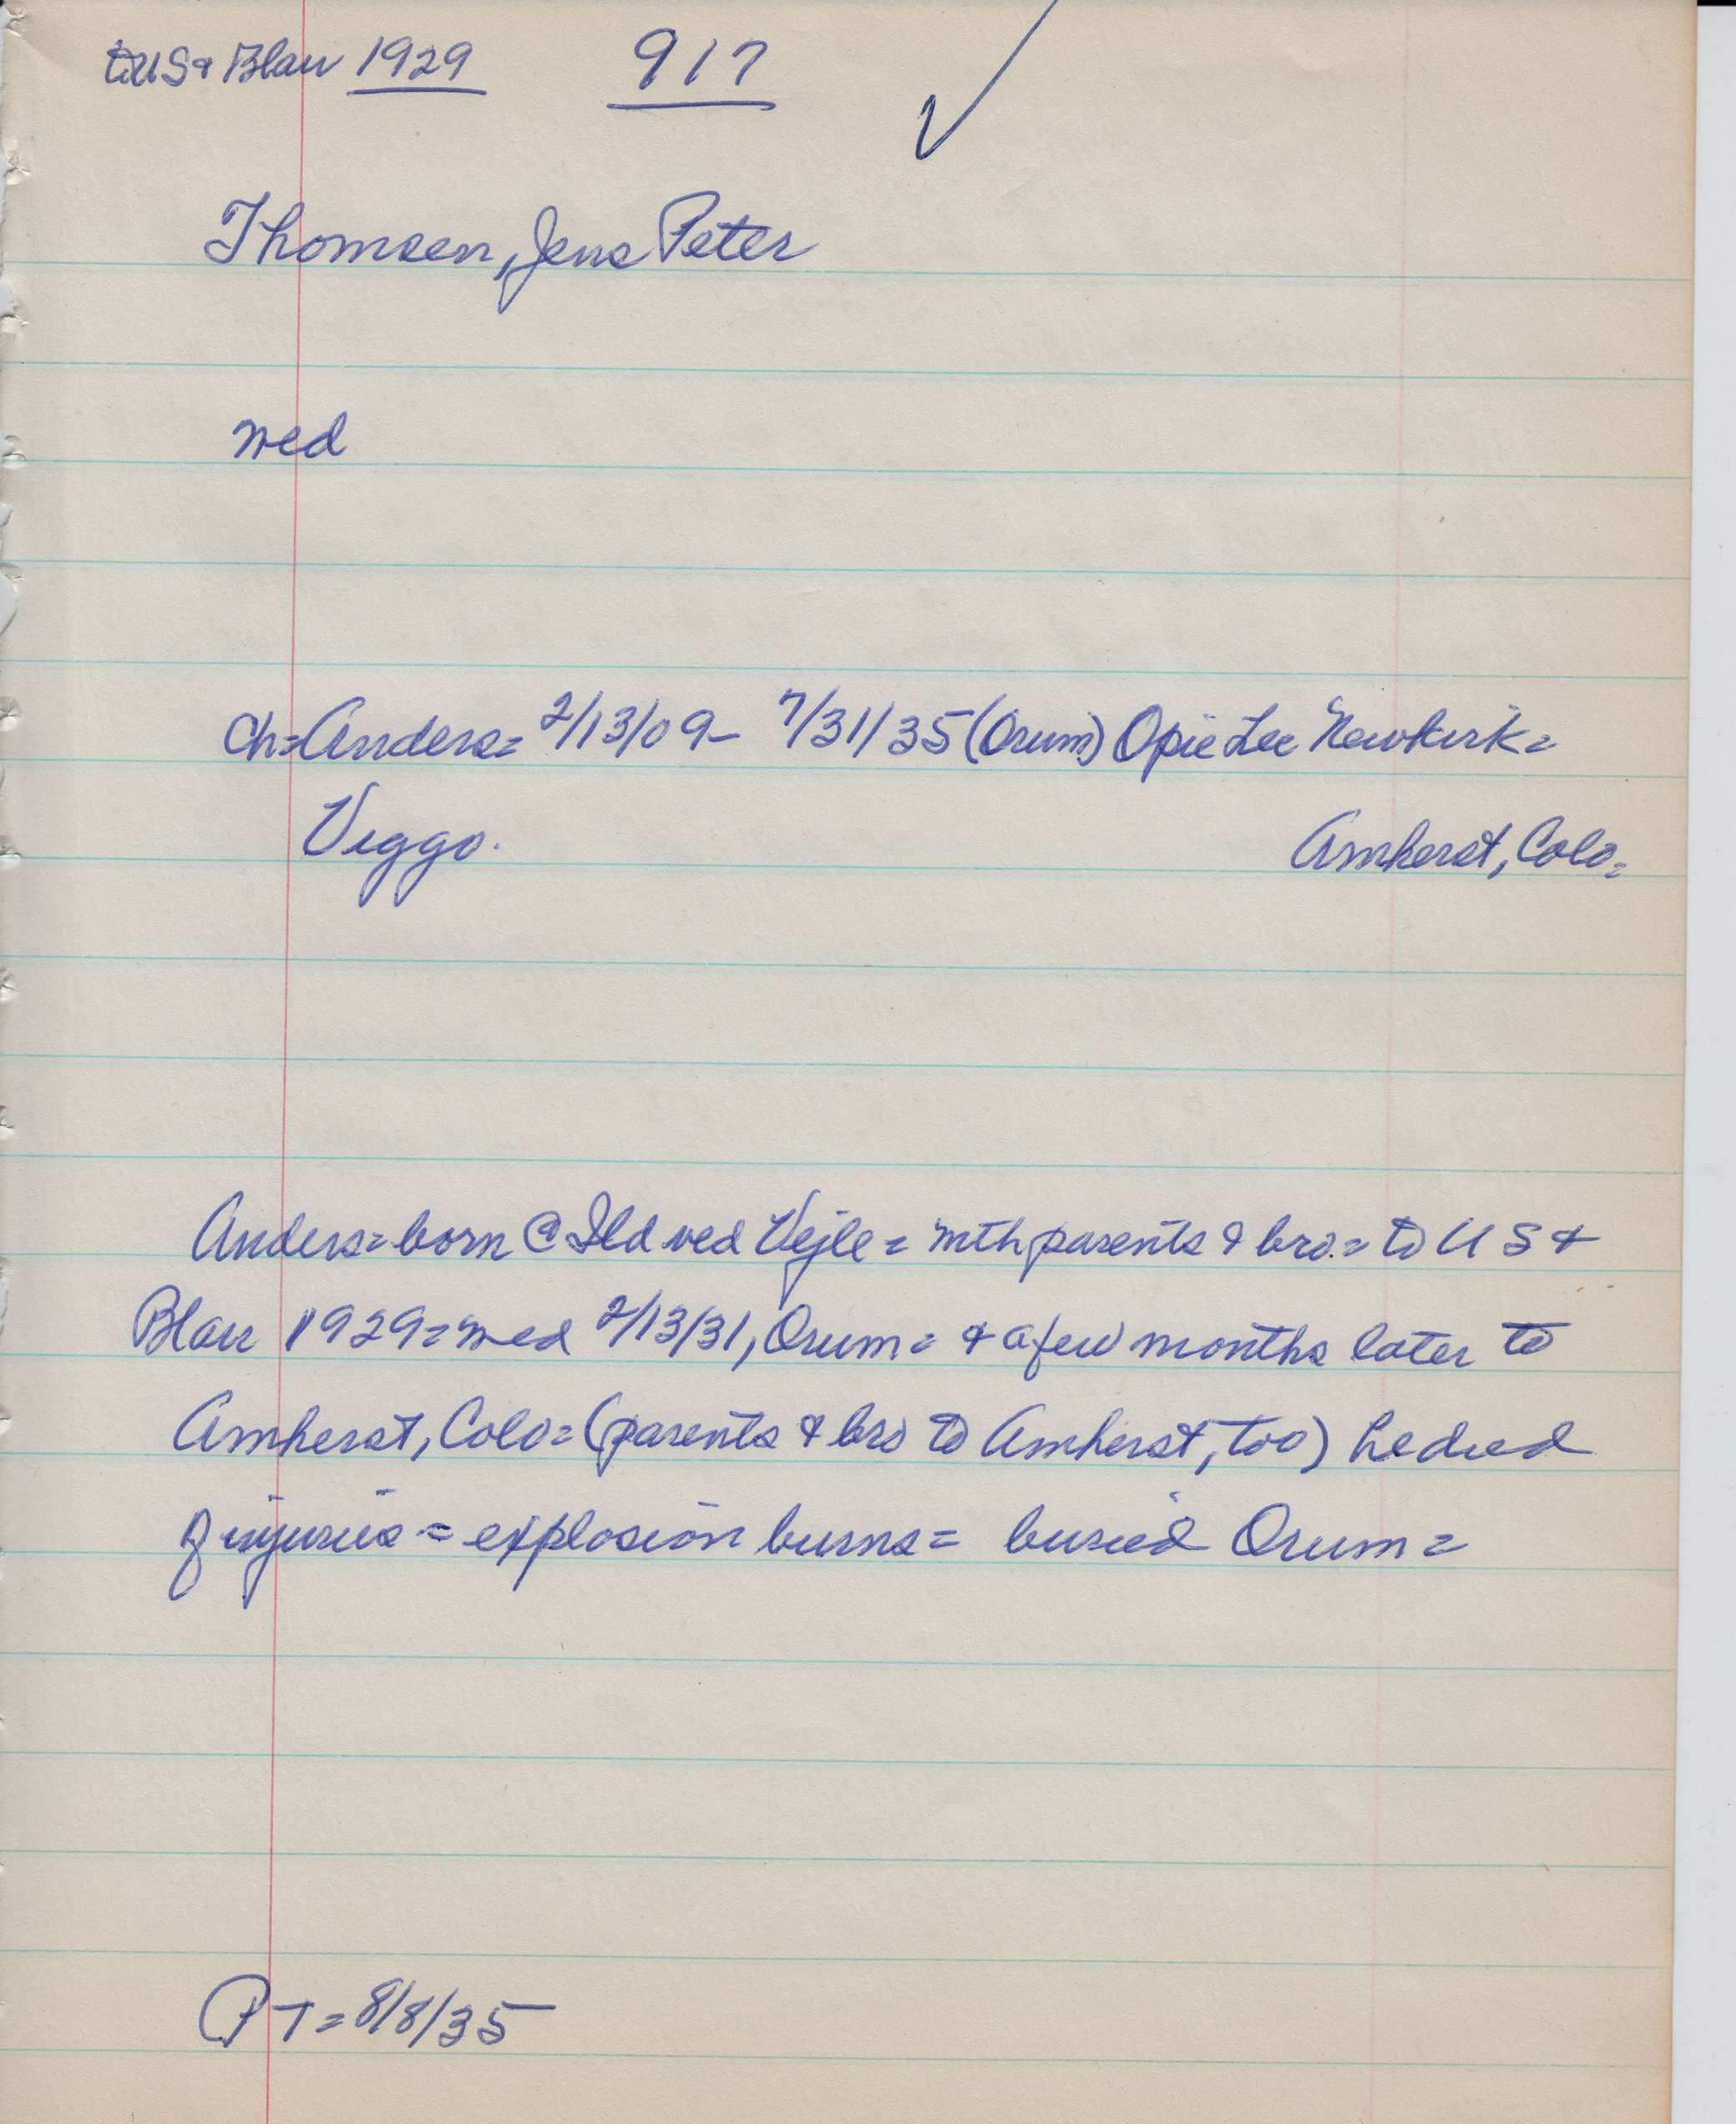 to US & Blair 1929 917
Thomsen, Jens Peter
med
Ch= Anders= 2/13/09- 7/31/35 (Orum) Opie Lee Newkirk=
Viggo. Amherst, Colo=
Anders= born @ Ild ved Vejle = with parents & bro.= to US &
Blair 1929= med 2/13/31, Orum= & a few months later to
Amherst, Colo= (parents & bro to Amherst, too) he died
of injuries = explosion burns= buried Orum=
PT= 8/8/35